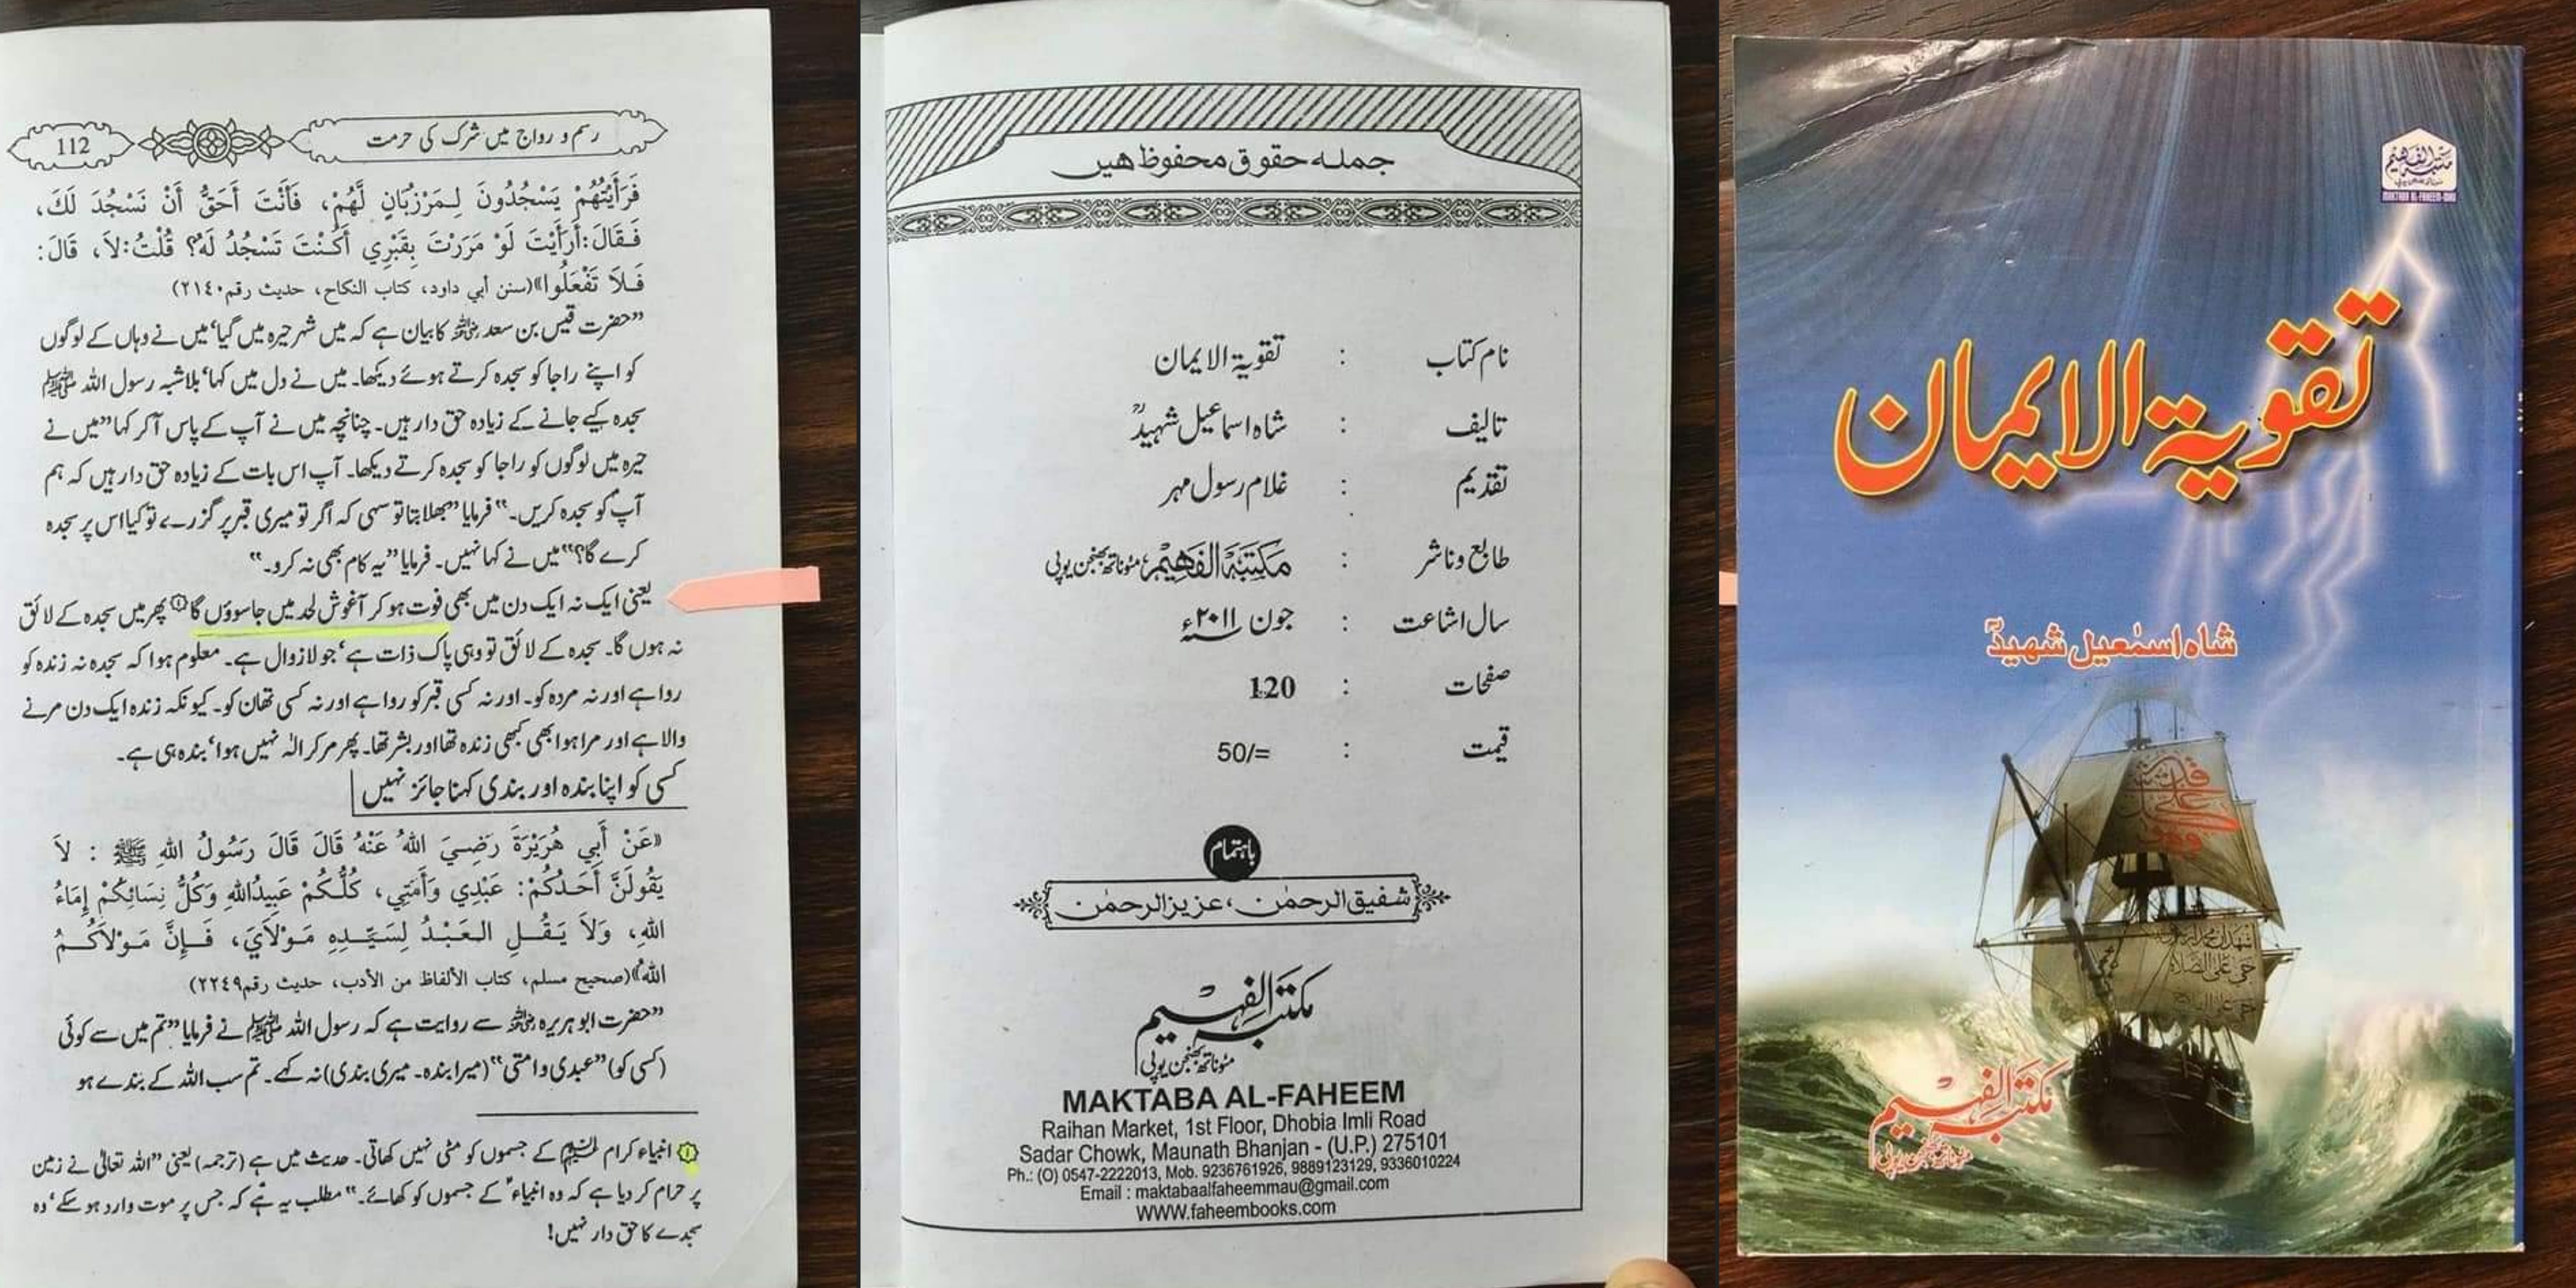 112
رسم و رواج میں شرک کی حرمت
فَرَأَيْتُهُمْ يَسْجُدُونَ لِـمَرْزُبَانٍ لَّهُمْ، فَأَنْتَ أَحَقُّ أَنْ نَسْجُدَ لَكَ،
فَـقَالَ:أَرَأَيْتَ لَوْ مَرَرْتَ بِقَبْرِي أَكُـنْتَ تَسْجُدُ لَهُ؟ قُلْتُ:لاَ، قَالَ:
فَـلاَ تَفْعَلُوا»(سنن أبي داود، كتاب النكاح، حديث رقم٢١٤٠)
”حضرت قیس بن سعد رضی اللہ عنہ کا بیان ہے کہ میں شہر حیرہ میں گیا‘ میں نے وہاں کے لوگوں
کو اپنے راجا کو سجدہ کرتے ہوئے دیکھا۔ میں نے دل میں کہا‘ بلاشبہ رسول اللہ ﷺ
سجدہ کیے جانے کے زیادہ حق دار ہیں۔ چنانچہ میں نے آپ کے پاس آکر کہا ”میں نے
حیرہ میں لوگوں کو راجا کو سجدہ کرتے دیکھا۔ آپ اس بات کے زیادہ حق دار ہیں کہ ہم
آپؐ کو سجدہ کریں۔“ فرمایا ”بھلا بتا تو سہی کہ اگر تو میری قبر پر گزرے تو کیا اس پر سجدہ
کرے گا؟“ میں نے کہا نہیں۔ فرمایا ”یہ کام بھی نہ کرو۔“
یعنی ایک نہ ایک دن میں بھی فوت ہو کر آغوش لحد میں جا سوؤں گا ۱ پھر میں سجدہ کے لائق
نہ ہوں گا۔ سجدہ کے لائق تو وہی پاک ذات ہے‘ جو لازوال ہے۔ معلوم ہوا کہ سجدہ نہ زندہ کو
روا ہے اور نہ مردہ کو۔ اور نہ کسی قبر کو روا ہے اور نہ کسی تھان کو۔ کیونکہ زندہ ایک دن مرنے
والا ہے اور مرا ہوا بھی کبھی زندہ تھا اور بشر تھا۔ پھر مر کر الٰہ نہیں ہوا‘ بندہ ہی ہے۔
کسی کو اپنا بندہ اور بندی کہنا جائز نہیں
«عَنْ أَبِي هُرَيْرَةَ رَضِـيَ اللهُ عَنْهُ قَالَ قَالَ رَسُولُ اللهِ ﷺ : لاَ
يَقُولَنَّ أَحَـدُكُمْ: عَبْدِي وَأَمَتِي، كُلُّـكُمْ عَبِيدُاللهِ وَكُلُّ نِسَائِكُمْ إِمَاءُ
اللهِ، وَلاَ يَـقُـلِ الـعَـبْـدُ لِسَـيِّـدِهِ مَـوْلاَيَ، فَـإِنَّ مَـوْلاَكُـمُ
اللهُ»(صحيح مسلم، كتاب الألفاظ من الأدب، حديث رقم٢٢٤٩)
”حضرت ابو ہریرہ رضی اللہ عنہ سے روایت ہے کہ رسول اللہ ﷺ نے فرمایا ”تم میں سے کوئی
(کسی کو) ”عبدی و امتی“ (میرا بندہ۔ میری بندی) نہ کہے۔ تم سب اللہ کے بندے ہو
۱ انبیاء کرام علیہم السلام کے جسموں کو مٹی نہیں کھاتی۔ حدیث میں ہے (ترجمہ) یعنی ”اللہ تعالیٰ نے زمین
پر حرام کر دیا ہے کہ وہ انبیاءؑ کے جسموں کو کھائے۔“ مطلب یہ ہے کہ جس پر موت وارد ہو سکے‘ وہ
سجدے کا حق دار نہیں!
جملہ حقوق محفوظ ھیں
نام کتاب : تقویۃ الایمان
تالیف : شاہ اسماعیل شہیدؒ
تقدیم : غلام رسول مہر
طابع و ناشر : مکتبۃ الفہیم، مئوناتھ بھنجن یوپی
سال اشاعت : جون ۲۰۱۱ء
صفحات : 120
قیمت : 50/=
باہتمام
شفیق الرحمٰن، عزیز الرحمٰن
مکتبہ الفہیم
مئوناتھ بھنجن یوپی
MAKTABA AL-FAHEEM
Raihan Market, 1st Floor, Dhobia Imli Road
Sadar Chowk, Maunath Bhanjan - (U.P.) 275101
Ph.: (O) 0547-2222013, Mob. 9236761926, 9889123129, 9336010224
Email : maktabaalfaheemmau@gmail.com
WWW.faheembooks.com
مکتبۃ الفہیم
MAKTABA AL-FAHEEM-MAU
تقویۃ الایمان
شاہ اسمٰعیل شہیدؒ
حی علی الصلاة
مکتبہ الفہیم
مئوناتھ بھنجن یوپی